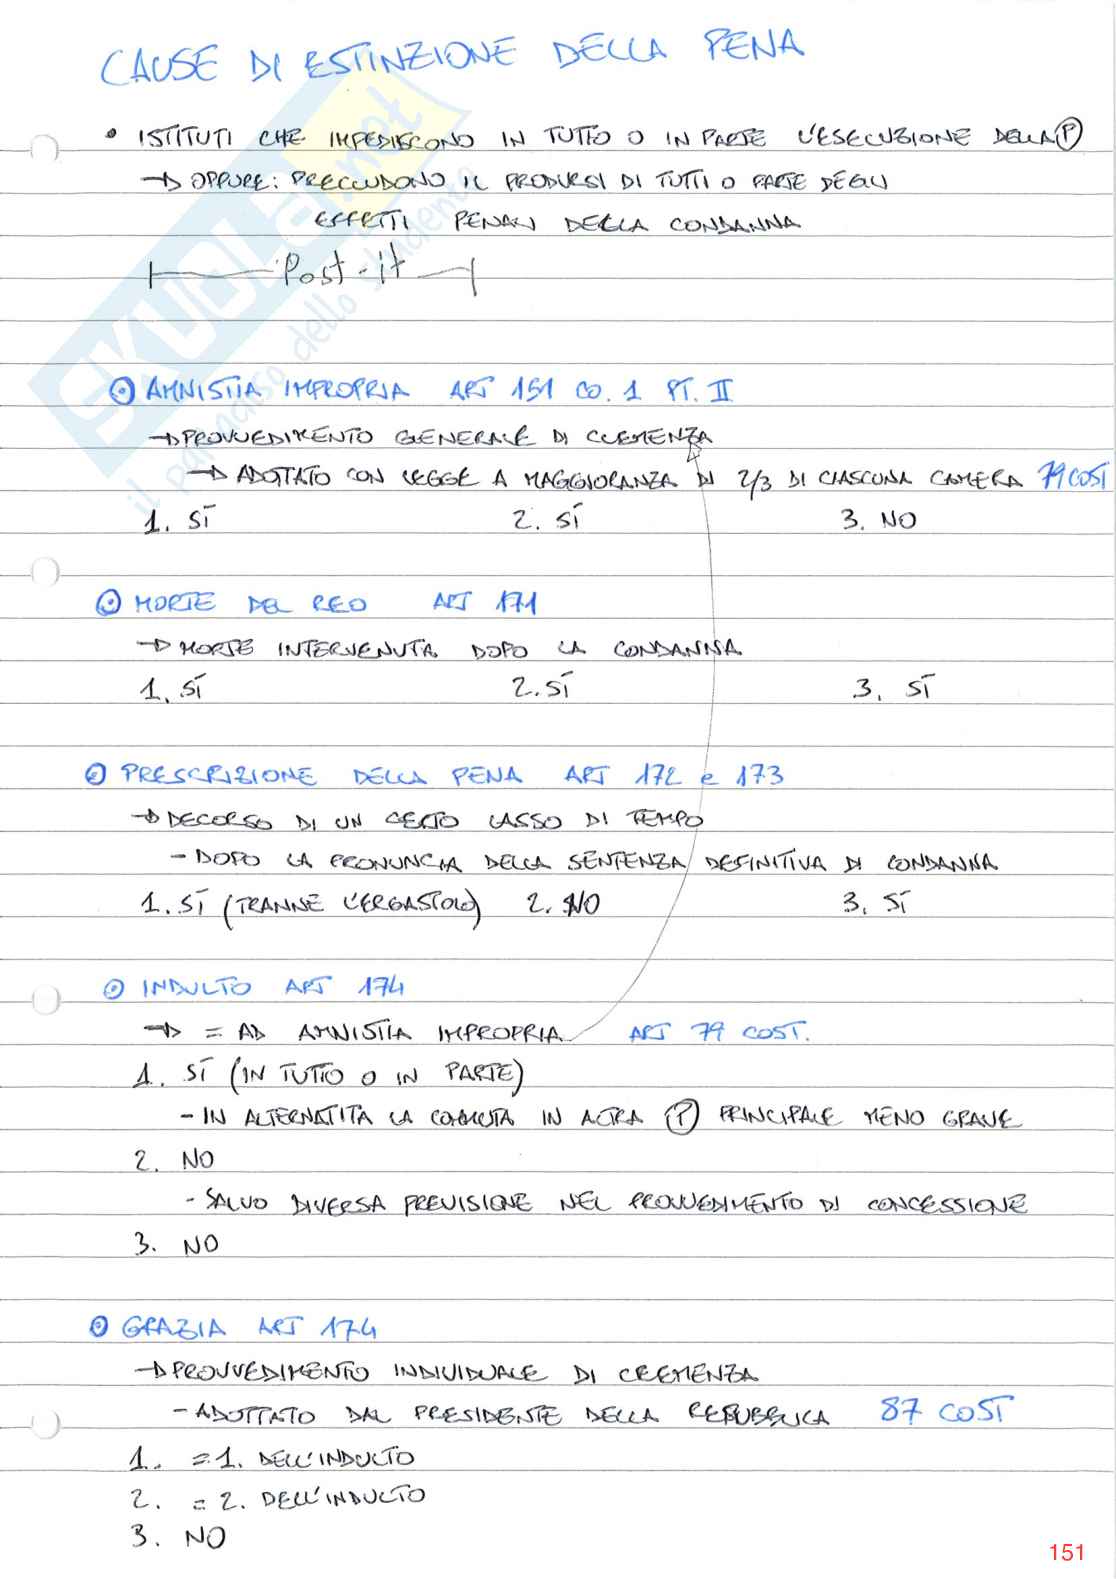 CAUSE DI ESTINZIONE DELLA PENA
• ISTITUTI CHE IMPEDISCONO IN TUTTO O IN PARTE L'ESECUZIONE DELLA P
→ OPPURE: PRECLUDONO IL PRODURSI DI TUTTI O PARTE DEGLI
EFFETTI PENALI DELLA CONDANNA
Post-it
AMNISTIA IMPROPRIA ART 151 CO. 1 PT. II
→ PROVVEDIMENTO GENERALE DI CLEMENZA
→ ADOTTATO CON LEGGE A MAGGIORANZA DI 2/3 DI CIASCUNA CAMERA 79 COST
1. SÌ 2. SÌ 3. NO
MORTE DEL REO ART 171
→ MORTE INTERVENUTA DOPO LA CONDANNA
1. SÌ 2. SÌ 3. SÌ
PRESCRIZIONE DELLA PENA ART 172 e 173
→ DECORSO DI UN CERTO LASSO DI TEMPO
- DOPO LA PRONUNCIA DELLA SENTENZA DEFINITIVA DI CONDANNA
1. SÌ (TRANNE L'ERGASTOLO) 2. NO 3. SÌ
INDULTO ART 174
→ = AD AMNISTIA IMPROPRIA ART 79 COST.
1. SÌ (IN TUTTO O IN PARTE)
- IN ALTERNATITA LA COMMUTA IN ALTRA P PRINCIPALE MENO GRAVE
2. NO
- SALVO DIVERSA PREVISIONE NEL PROVVEDIMENTO DI CONCESSIONE
3. NO
GRAZIA ART 174
→ PROVVEDIMENTO INDIVIDUALE DI CLEMENZA
- ADOTTATO DAL PRESIDENTE DELLA REPUBBLICA 87 COST
1. = 1. DELL'INDULTO
2. = 2. DELL'INDULTO
3. NO
151
SKUOLA.net
il paradiso dello studente